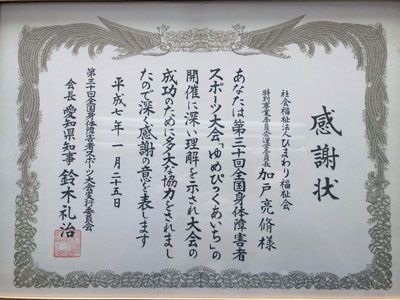 感謝状
社会福祉法人ひまわり福祉会
特別事業委員会運営委員長
加戸亮脩様
あなたは第三十回全国身体障害者
スポーツ大会「ゆめぴっくあいち」の
開催に深い理解を示され大会の
成功のために多大な協力をされまし
たので深く感謝の意を表します
平成七年一月二十五日
第三十回全国身体障害者スポーツ大会実行委員会
会長愛知県知事鈴木礼治